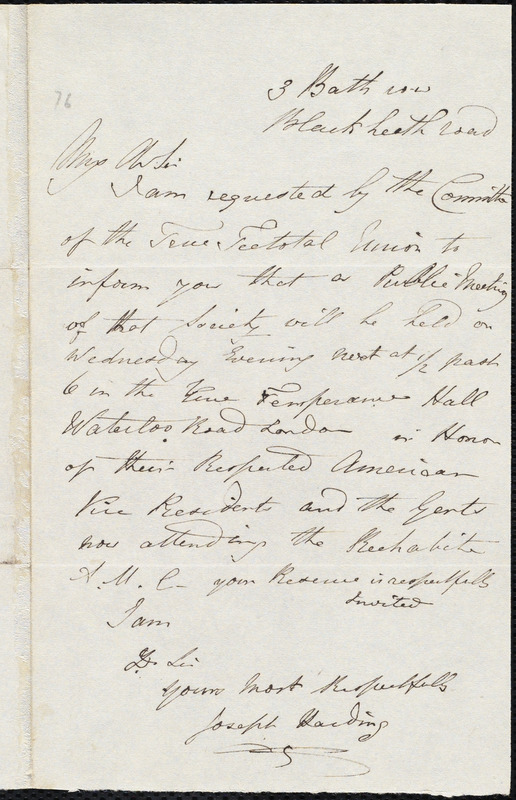 76
3 Bath row
Blackheath road
Sir
I am requested by the Committe
of the True Teetotal Union to
inform you that a Public Meeting
of that Society will be held on
Wednesday Evening next at 1/2 past
6 in the True Temperance Hall
Waterloo Road London in Honor
of their Respected American
Vice Residents and the Gents
now attending the Rechabite
A. M. C your is respectfully
Invited
I am
Dr Sir
Yours Most Respectfully
Joseph Harding